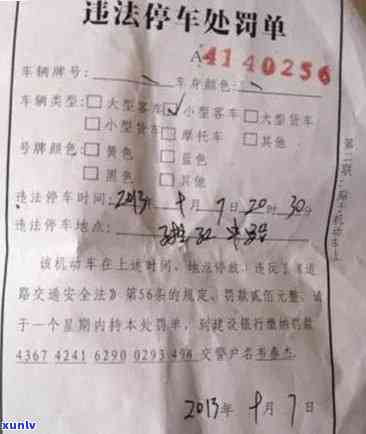 违法停车处罚单
A4140256
车辆牌号： 车身颜色：
车辆类型：□大型客车 ☑小型客车 □大型货车
□小型货车 □摩托车 □其他
号牌颜色：□黄色 □蓝色
□黑色 □其他
违法停车时间：2013年 十月 7日 20时 30分
违法停车地点：
该机动车在上述时间、地点停放，违反了《道
路交通安全法》第56条的规定，罚款贰佰元整，请
于一个星期内持本处罚单，到建设银行缴纳罚款
4367 4241 6290 0293 498 交警户名韦泰杰
2013年 十月 7日
第二联
xunlv